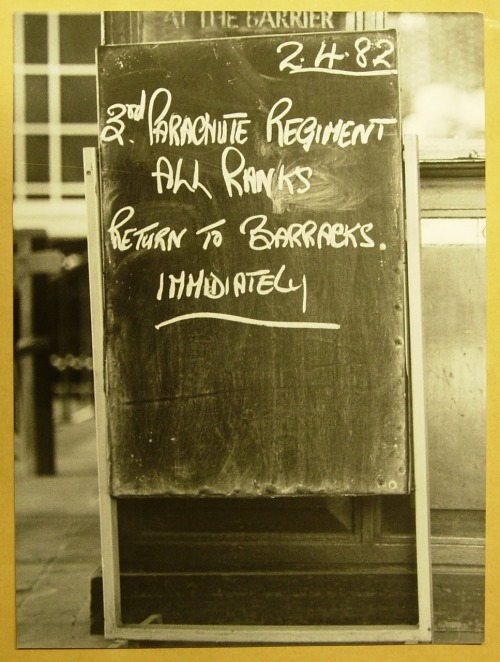 AT THE BARRIER
2.4.82
3rd. PARACHUTE REGIMENT
ALL RANKS
RETURN TO BARRACKS.
IMMIDIATELY